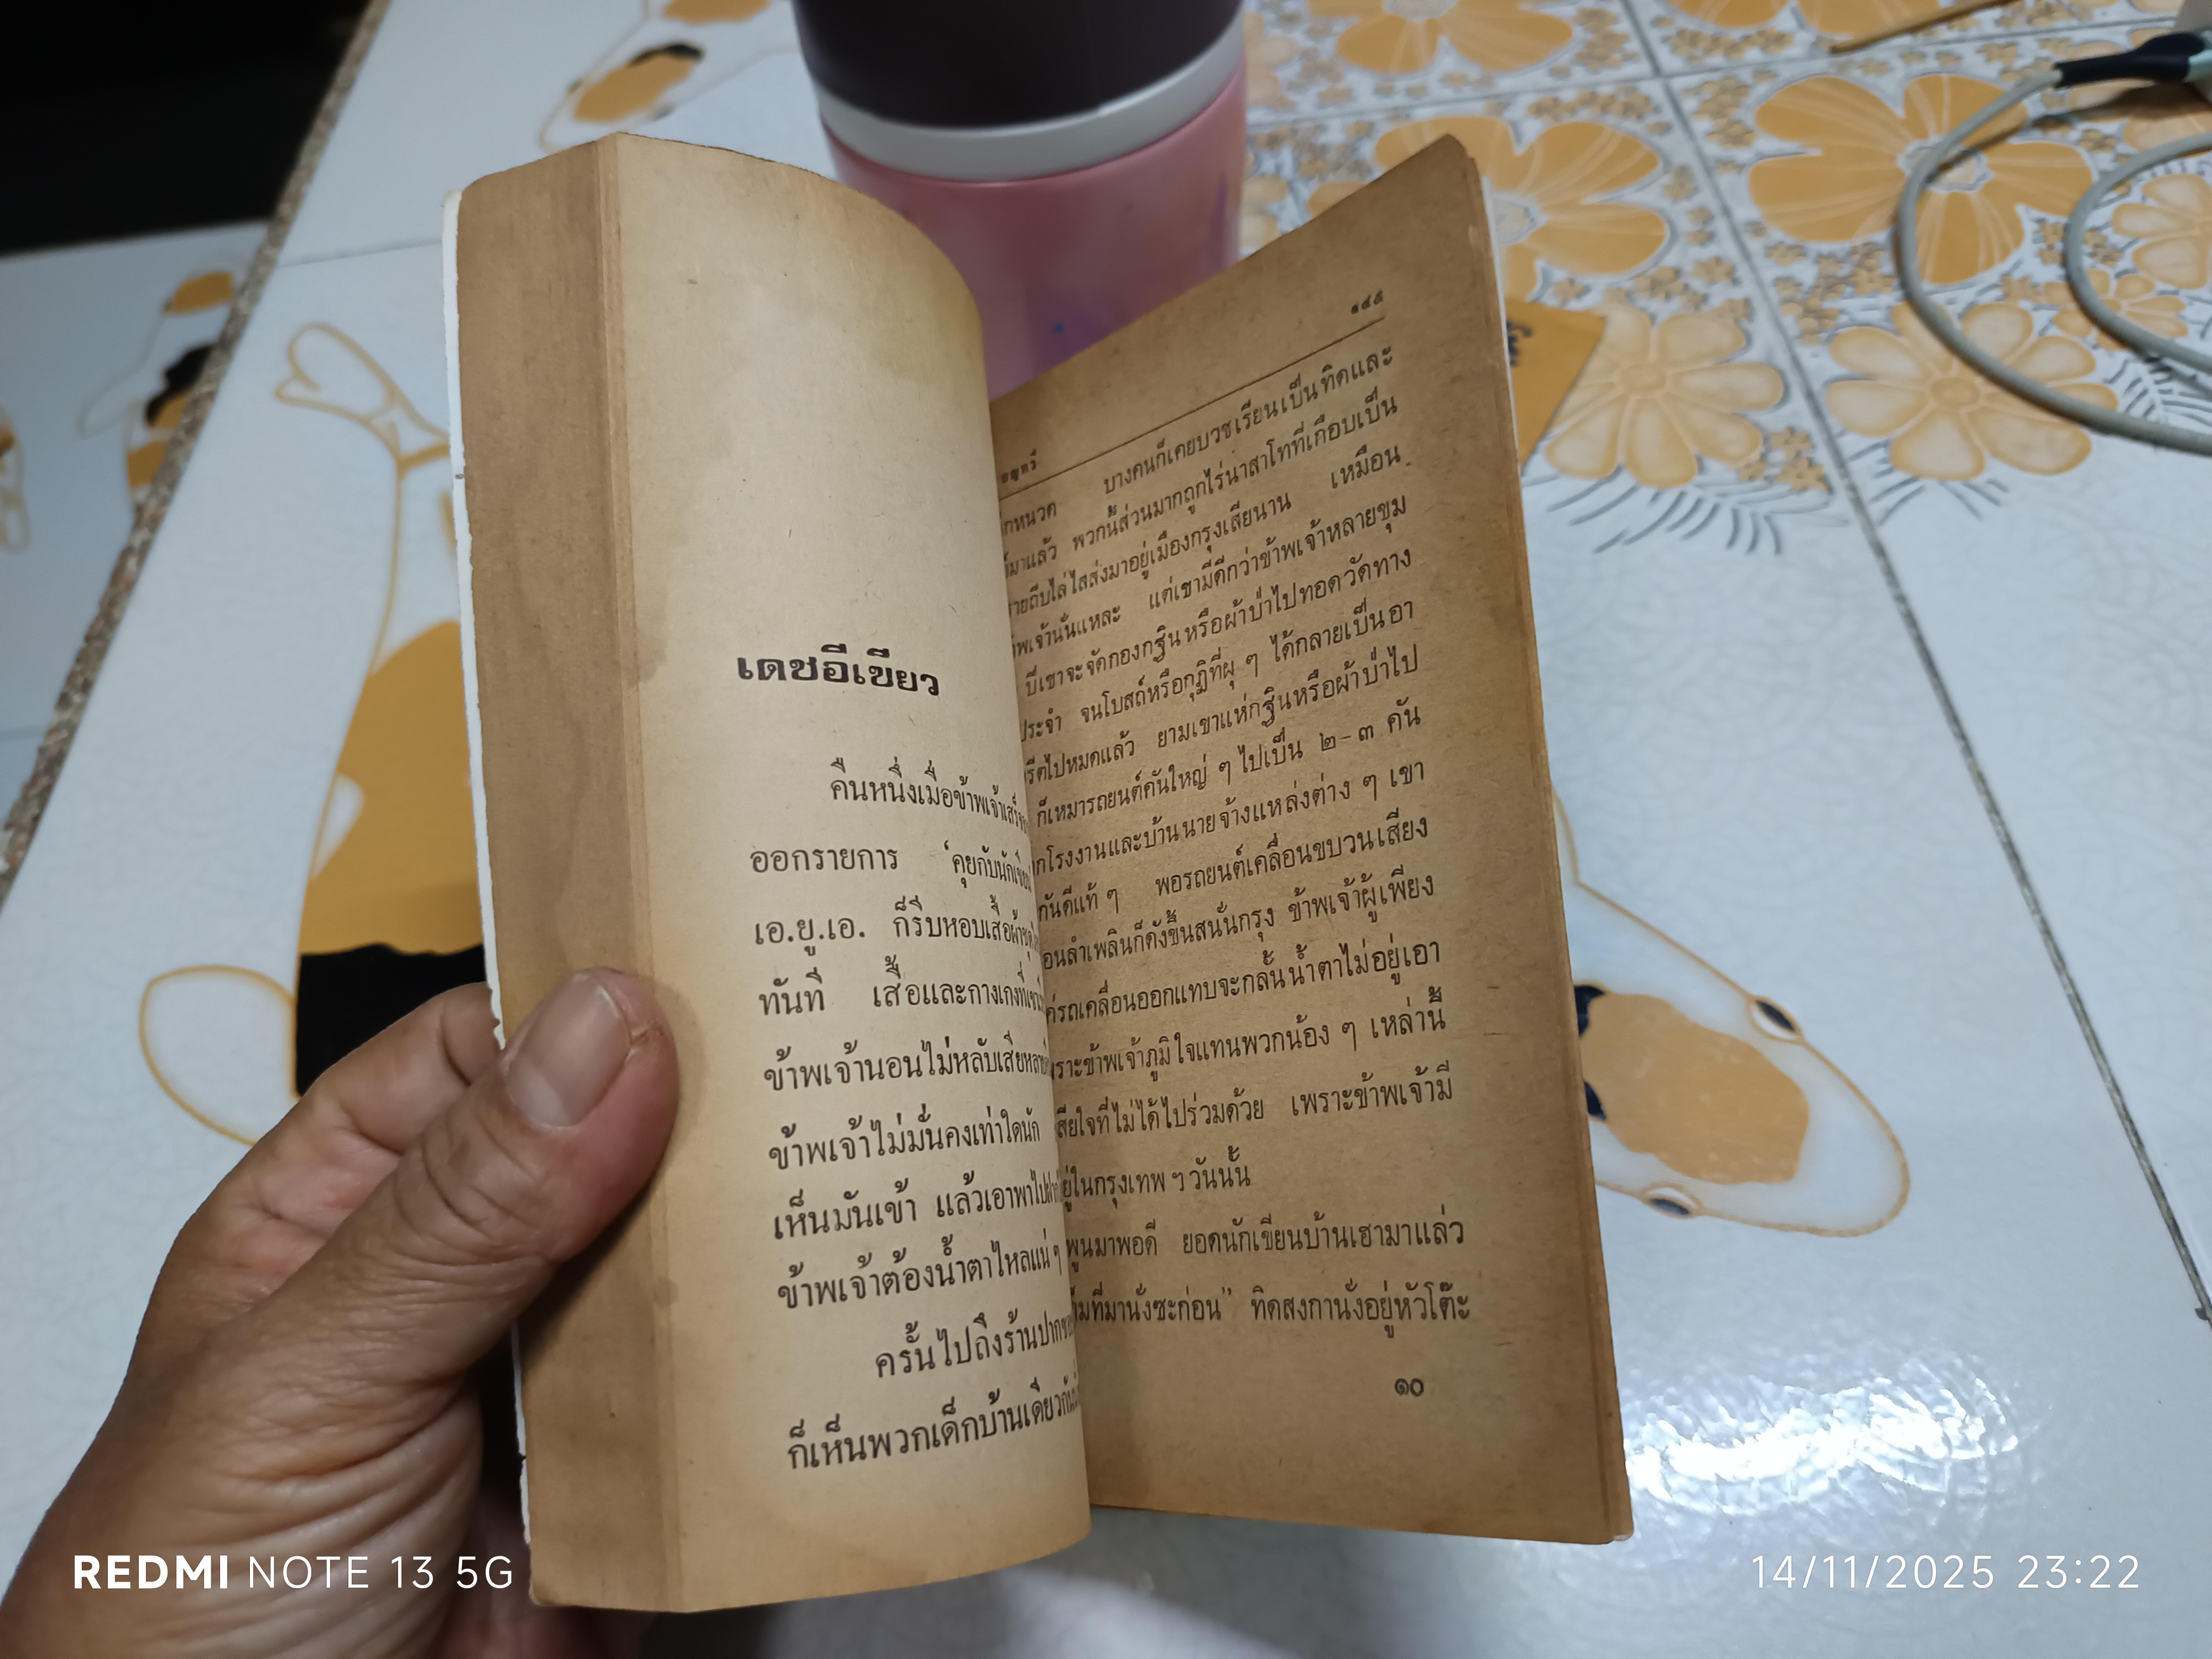 เดชอีเขียว
คืนหนึ่งเมื่อข้าพเจ้าเสร็จ
ออกรายการ 'คุยกับนักเขียน
เอ.ยู.เอ. ก็รีบหอบเสื้อผ้าชุด
ทันที เสื้อและกางเกงที่
ข้าพเจ้านอนไม่หลับเสียหลาย
ข้าพเจ้าไม่มั่นคงเท่าใดนัก
เห็นมันเข้า แล้วเอาพาไป
ข้าพเจ้าต้องน้ำตาไหลแน่ ๆ
ครั้นไปถึงร้านปาก
ก็เห็นพวกเด็กบ้านเดียวกัน
๑๔๕
หนวด บางคนก็เคยบวชเรียนเป็นทิดและ
มาแล้ว พวกนี้ส่วนมากถูกไร่นาสาโทที่เกือบเป็น
ถีบไล่ไสส่งมาอยู่เมืองกรุงเสียนาน เหมือน
พเจ้านั่นแหละ แต่เขามีดีกว่าข้าพเจ้าหลายขุม
ปีเขาจะจัดกองกฐินหรือผ้าป่าไปทอดวัดทาง
ประจำ จนโบสถ์หรือกุฏิที่ผุ ๆ ได้กลายเป็นอา
รีตไปหมดแล้ว ยามเขาแห่กฐินหรือผ้าป่าไป
ก็เหมารถยนต์คันใหญ่ ๆ ไปเป็น ๒-๓ คัน
กโรงงานและบ้านนายจ้างแหล่งต่าง ๆ เขา
กันดีแท้ ๆ พอรถยนต์เคลื่อนขบวนเสียง
อนลำเพลินก็ดังขึ้นสนั่นกรุง ข้าพเจ้าผู้เพียง
รถเคลื่อนออกแทบจะกลั้นน้ำตาไม่อยู่เอา
เพราะข้าพเจ้าภูมิใจแทนพวกน้อง ๆ เหล่านี้
เสียใจที่ไม่ได้ไปร่วมด้วย เพราะข้าพเจ้ามี
อยู่ในกรุงเทพ ฯ วันนั้น
พูนมาพอดี ยอดนักเขียนบ้านเฮามาแล่ว
ที่มานั่งซะก่อน” ทิดสงกานั่งอยู่หัวโต๊ะ
๑๐
REDMI NOTE 13 5G
14/11/2025 23:22